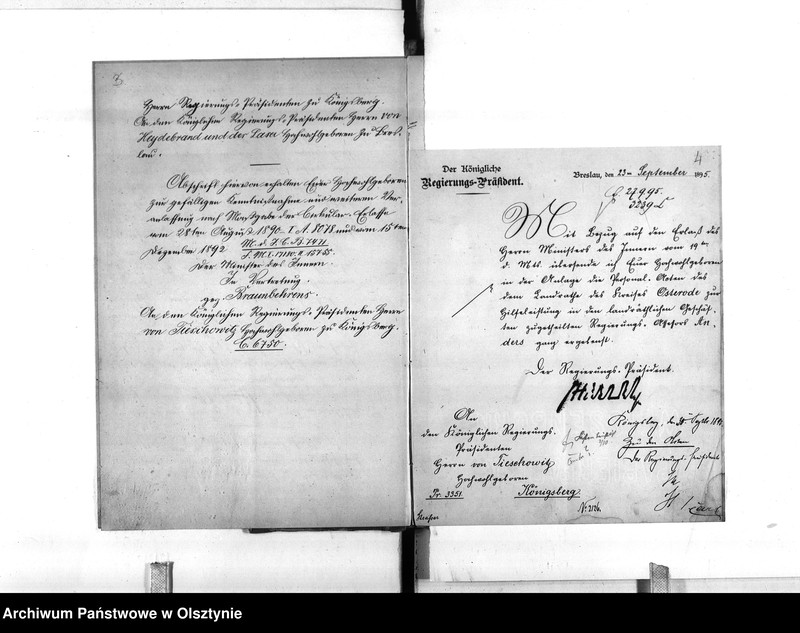 3
Herrn Regierungs-Präsidenten zu Königsberg.
An den Königlichen Regierungs-Präsidenten Herrn von
Heydebrand und der Lasa Hochwohlgeboren zu Bres-
lau.
Abschrift hiervon erhalten Eure Hochwohlgeboren
zur gefälligen Kenntnißnahme und weiteren Ver-
anlassung nach Maßgabe der Cirkular-Erlasse
vom 28ten August 1890 - I. A. 8078 und vom 15ten
Dezember 1892
Der Minister des Innern.
In Vertretung.
gez. Braunbehrens.
An den Königlichen Regierungs-Präsidenten Herrn
von Tieschowitz Hochwohlgeboren zu Königsberg.
C. 6750.
4
Der Königliche
Regierungs-Präsident.
Breslau, den 23ten September 1895.
Mit Bezug auf den Erlaß des
Herrn Ministers des Innern vom 19ten
d. Mts. übersende ich Eure Hochwohlgeboren
in der Anlage die Personal-Acten des
dem Landrathe des Kreises Osterode zur
Hilfeleistung in den landräthlichen Geschäf-
ten zugetheilten Regierungs-Assessors An-
ders ganz ergebenst.
Der Regierungs-Präsident.
An
den Königlichen Regierungs-
Präsidenten
Herrn von Tieschowitz
Hochwohlgeboren
Königsberg
Pr. 3351.
Königsberg, d.
Zu den Akten
Der Regierungs-Präsident
Archiwum Państwowe w Olsztynie